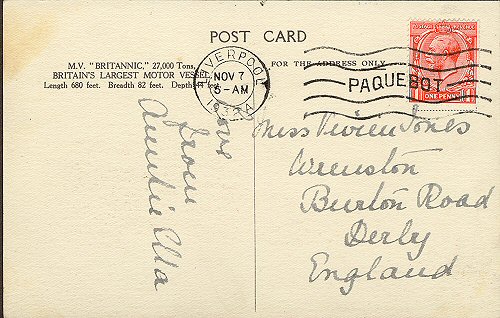 POST CARD
M.V. "BRITANNIC," 27,000 Tons,
BRITAIN'S LARGEST MOTOR VESSEL
Length 680 feet. Breadth 82 feet. Depth
FOR THE ADDRESS ONLY
LIVERPOOL
NOV 7
5-AM
PAQUEBOT
ONE PENNY
Love
from
Auntie Ella
Miss Vivien Jones
Burton Road
Derby
England